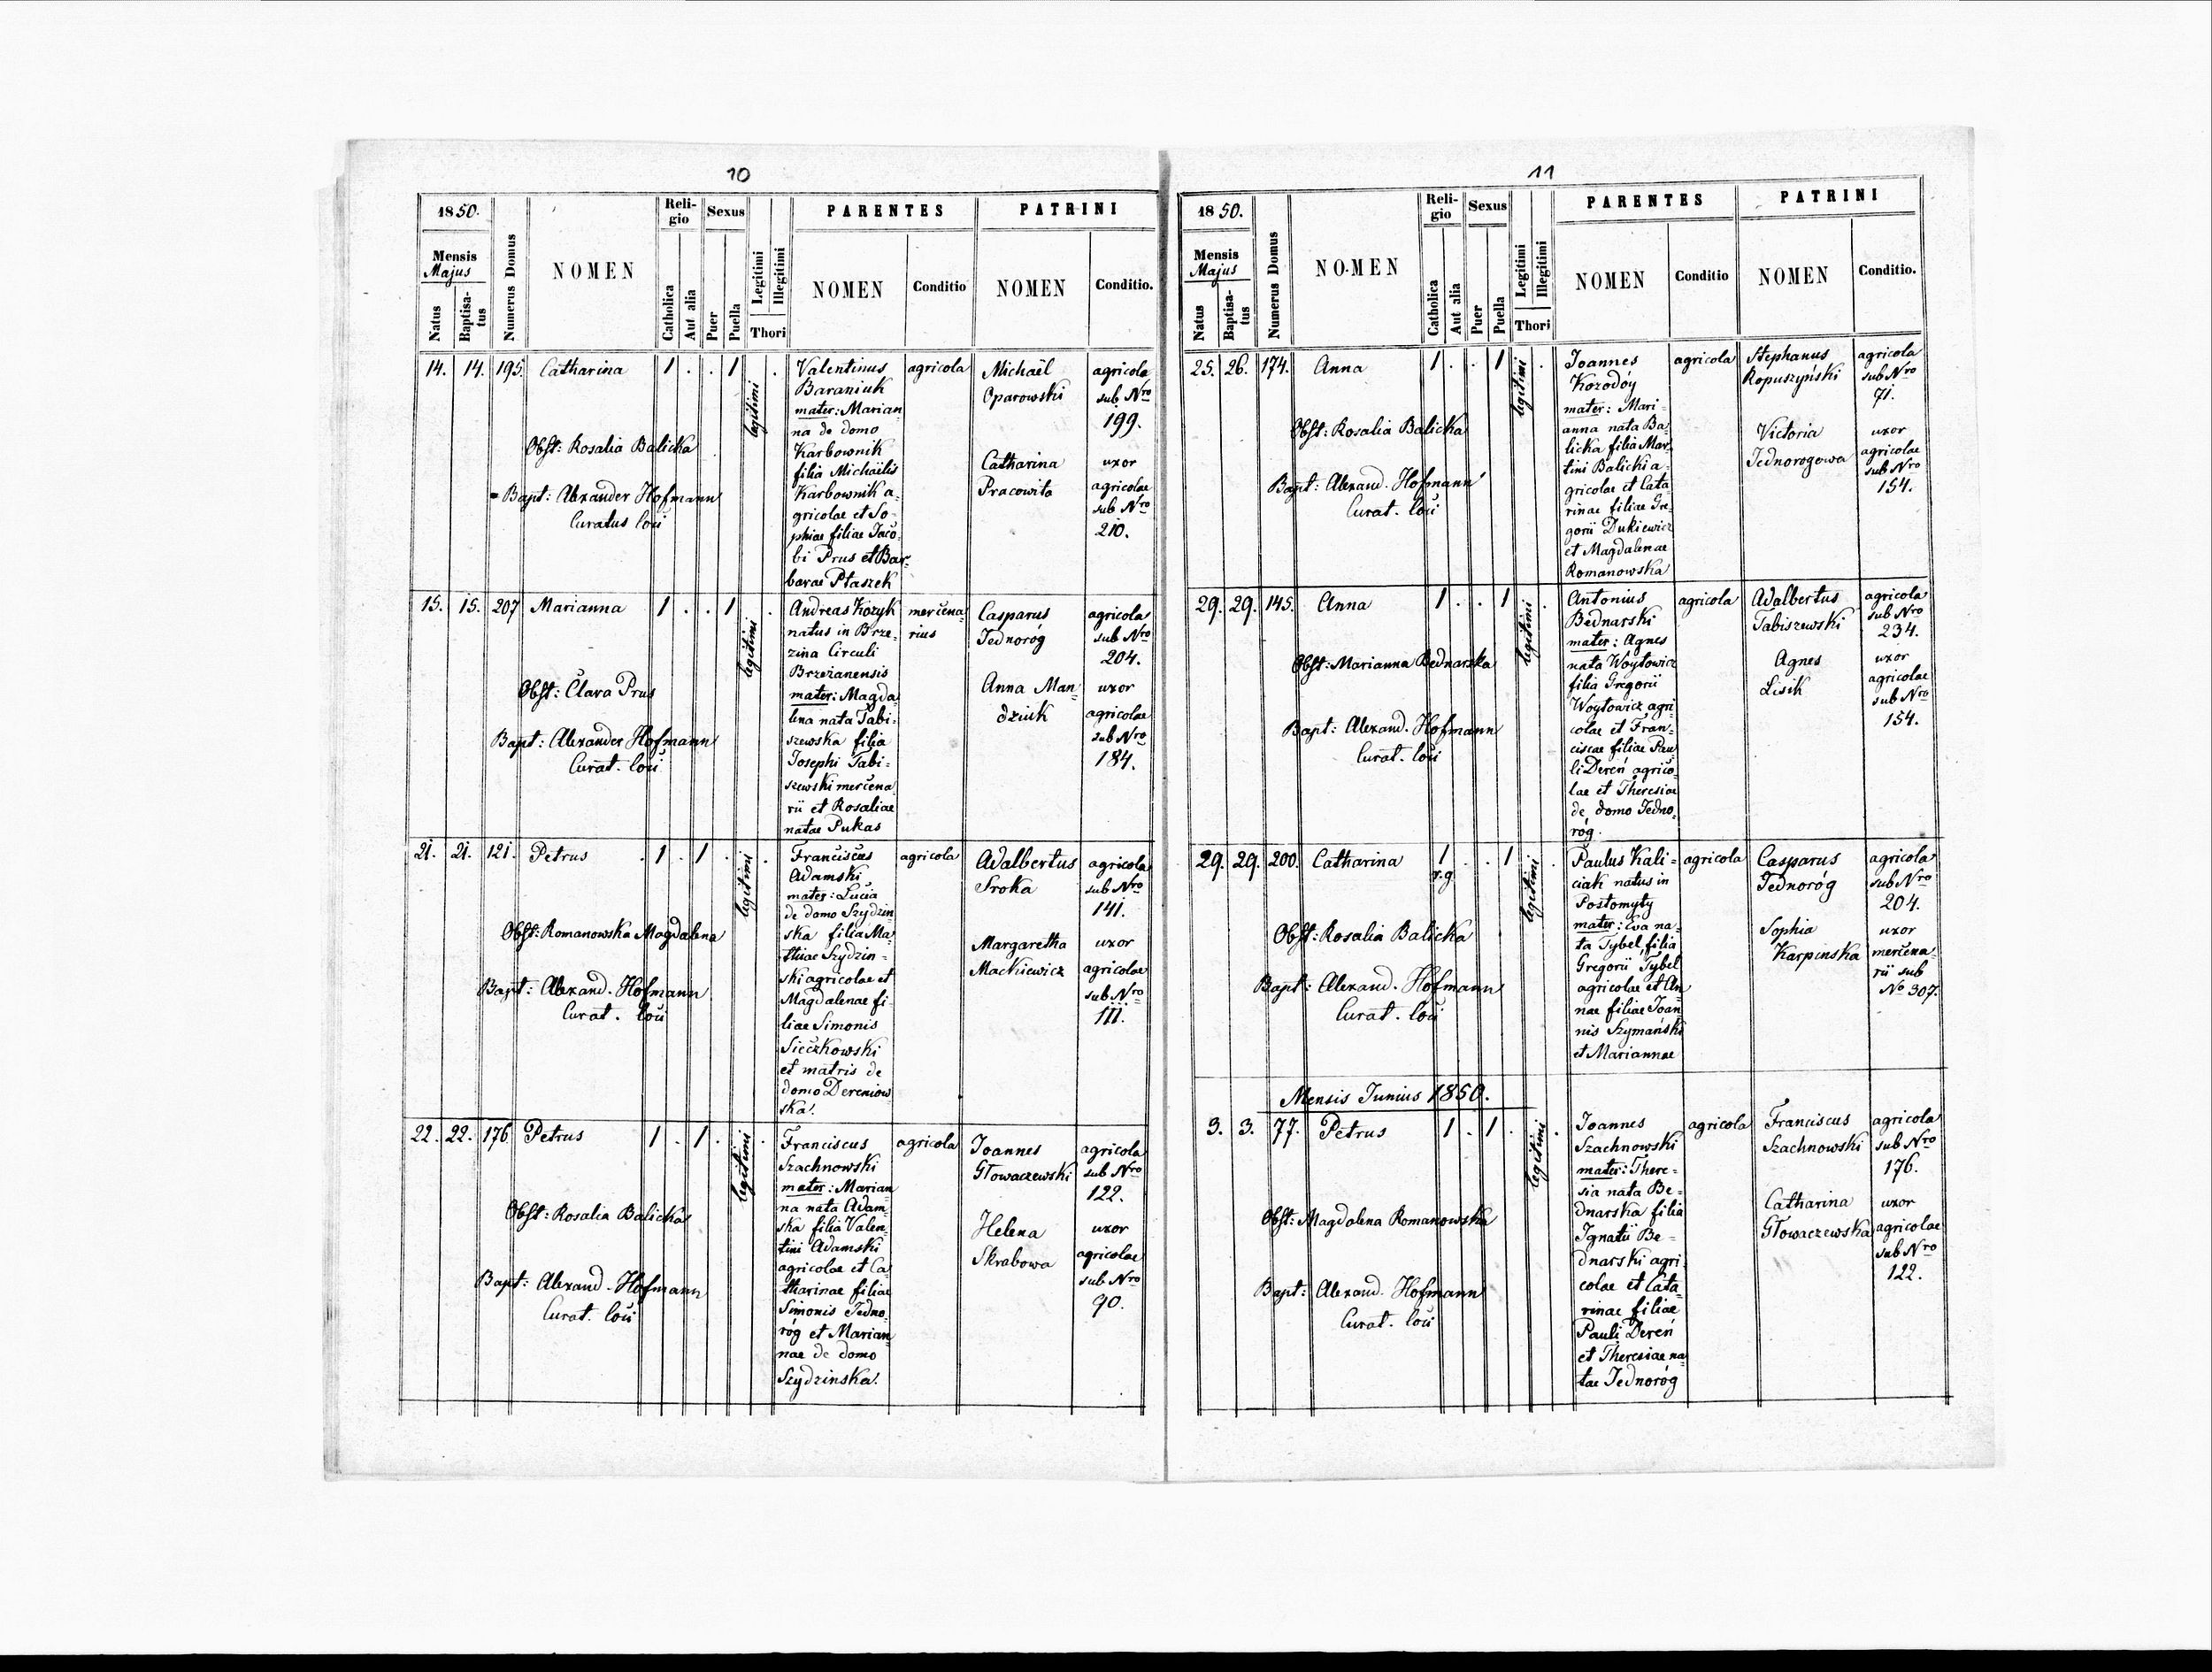 10
1850.
Mensis
Majus
Natus
Baptisa-
tus
Numerus Domus
NOMEN
Reli-
gio
Catholica
Aut alia
Sexus
Puer
Puella
Legitimi
Illegitimi
Thori
PARENTES
NOMEN
Conditio
PATRINI
NOMEN
Conditio.
14. 14. 195. Catharina 1 . . 1 legitimi .
Obst: Rosalia Balicka
Bapt: Alexander Hofmann
Curatus loci
Valentinus
Baraniuk
mater: Marian
na de domo
Karbownik
filia Michaëlis
Karbownik a-
gricolae et So-
phiae filiae Jaco-
bi Prus et Bar-
barae Ptaszek
agricola
Michaël
Oparowski
Catharina
Pracowita
agricola
sub Nro
199.
uxor
agricolae
sub Nro
210.
15. 15. 207 Marianna 1 . . 1 legitimi .
Obst: Clara Prus
Bapt: Alexander Hofmann
Curat. loci
Andreas Kozyk
natus in Brze-
zina Circuli
Brzezanensis
mater: Magda
lena nata Tabi-
szewska filia
Josephi Tabi-
szewski mercena
rii et Rosaliae
natae Pukas
mercena-
rius
Casparus
Jednoróg
Anna Man-
dziuk
agricola
sub Nro
204.
uxor
agricolae
sub Nro
184.
21. 21. 121. Petrus . 1 . 1 . legitimi .
Obst: Romanowska Magdalena
Bapt: Alexand. Hofmann
Curat. loci
Franciscus
Adamski
mater: Lucia
de domo Szydzin
ska filia Ma-
thiae Szydzin-
ski agricolae et
Magdalenae fi-
liae Simonis
Sieczkowski
et matris de
domo Dereniow
ska.
agricola
Adalbertus
Sroka
Margaretha
Mackiewicz
agricola
sub Nro
141.
uxor
agricolae
sub Nro
111.
22. 22. 176 Petrus 1 . 1 . legitimi .
Obst: Rosalia Balicka
Bapt: Alexand. Hofmann
Curat. loci
Franciscus
Szachnowski
mater: Marian
na nata Adam-
ska filia Valen-
tini Adamski
agricolae et Ca
tharinae filiae
Simonis Jedno-
róg et Marian
nae de domo
Szydzinska.
agricola
Joannes
Głowaczewski
Helena
Skrabowa
agricola
sub Nro
122.
uxor
agricolae
sub Nro
90.
11
1850.
Mensis
Majus
Natus
Baptisa-
tus
Numerus Domus
NOMEN
Reli-
gio
Catholica
Aut alia
Sexus
Puer
Puella
Legitimi
Illegitimi
Thori
PARENTES
NOMEN
Conditio
PATRINI
NOMEN
Conditio.
25. 26. 174. Anna 1 . . 1 legitimi .
Obst: Rosalia Balicka
Bapt: Alexand. Hofmann
Curat. loci
Joannes
Kozodóy
mater: Mari-
anna nata Ba-
licka filia Mar-
tini Balicki a-
gricolae et Cata-
rinae filiae Gre-
gorii Dukiewicz
et Magdalenae
Romanowska
agricola
Stephanus
Ropuszyński
Victoria
Jednorogowa
agricola
sub Nro
91.
uxor
agricolae
sub Nro
154.
29. 29. 145. Anna 1 . . 1 legitimi .
Obst: Marianna Bednarska
Bapt: Alexand. Hofmann
Curat. loci
Antonius
Bednarski
mater: Agnes
nata Woytowicz
filia Gregorii
Woytowicz agri-
colae et Fran-
ciscae filiae Pau
li Dereń agrico-
lae et Theresiae
de domo Jedno-
róg.
agricola
Adalbertus
Tabiszewski
Agnes
Lisik
agricola
sub Nro
234.
uxor
agricolae
sub Nro
154.
29. 29. 200. Catharina 1 . . 1 legitimi .
r.g.
Obst: Rosalia Balicka
Bapt: Alexand. Hofmann
Curat. loci
Paulus Kali-
ciak natus in
Postomyty
mater: Eva na-
ta Tybel filia
Gregorii Tybel
agricolae et An
nae filiae Joan
nis Szymański
et Mariannae
agricola
Casparus
Jednoróg
Sophia
Karpinska
agricola
sub Nro
204.
uxor
mercena-
rii sub
No 307.
Mensis Junius 1850.
3. 3. 77. Petrus 1 . 1 . legitimi .
Obst: Magdalena Romanowska
Bapt: Alexand. Hofmann
Curat. loci
Joannes
Szachnowski
mater: There-
sia nata Be-
dnarska filia
Ignatii Be-
dnarski agri-
colae et Cata-
rinae filiae
Pauli Dereń
et Theresiae na
tae Jednoróg
agricola
Franciscus
Szachnowski
Catharina
Głowaczewska
agricola
sub Nro
176.
uxor
agricolae
sub Nro
122.